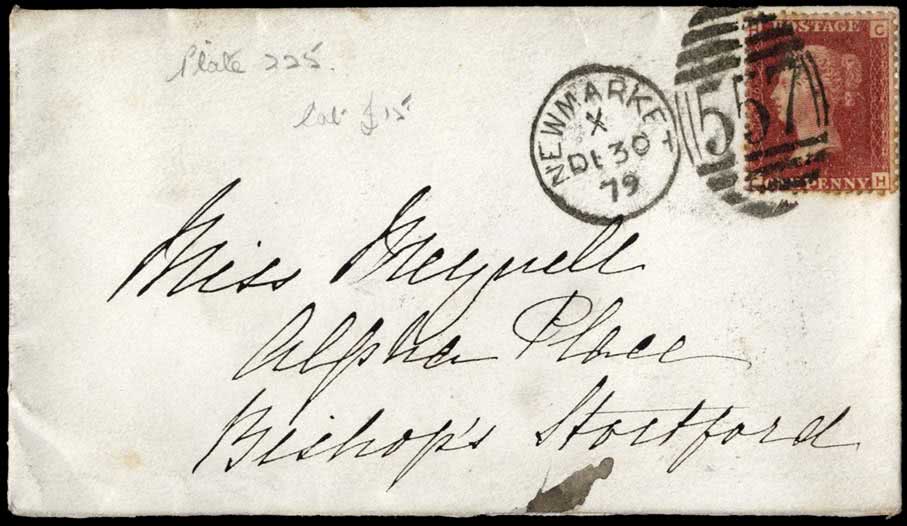 Plate 225.
NEWMARKET
X
DE 30
79
557
H C
POSTAGE
ONE PENNY
H
Miss Meynell
Alpha Place
Bishop's Stortford